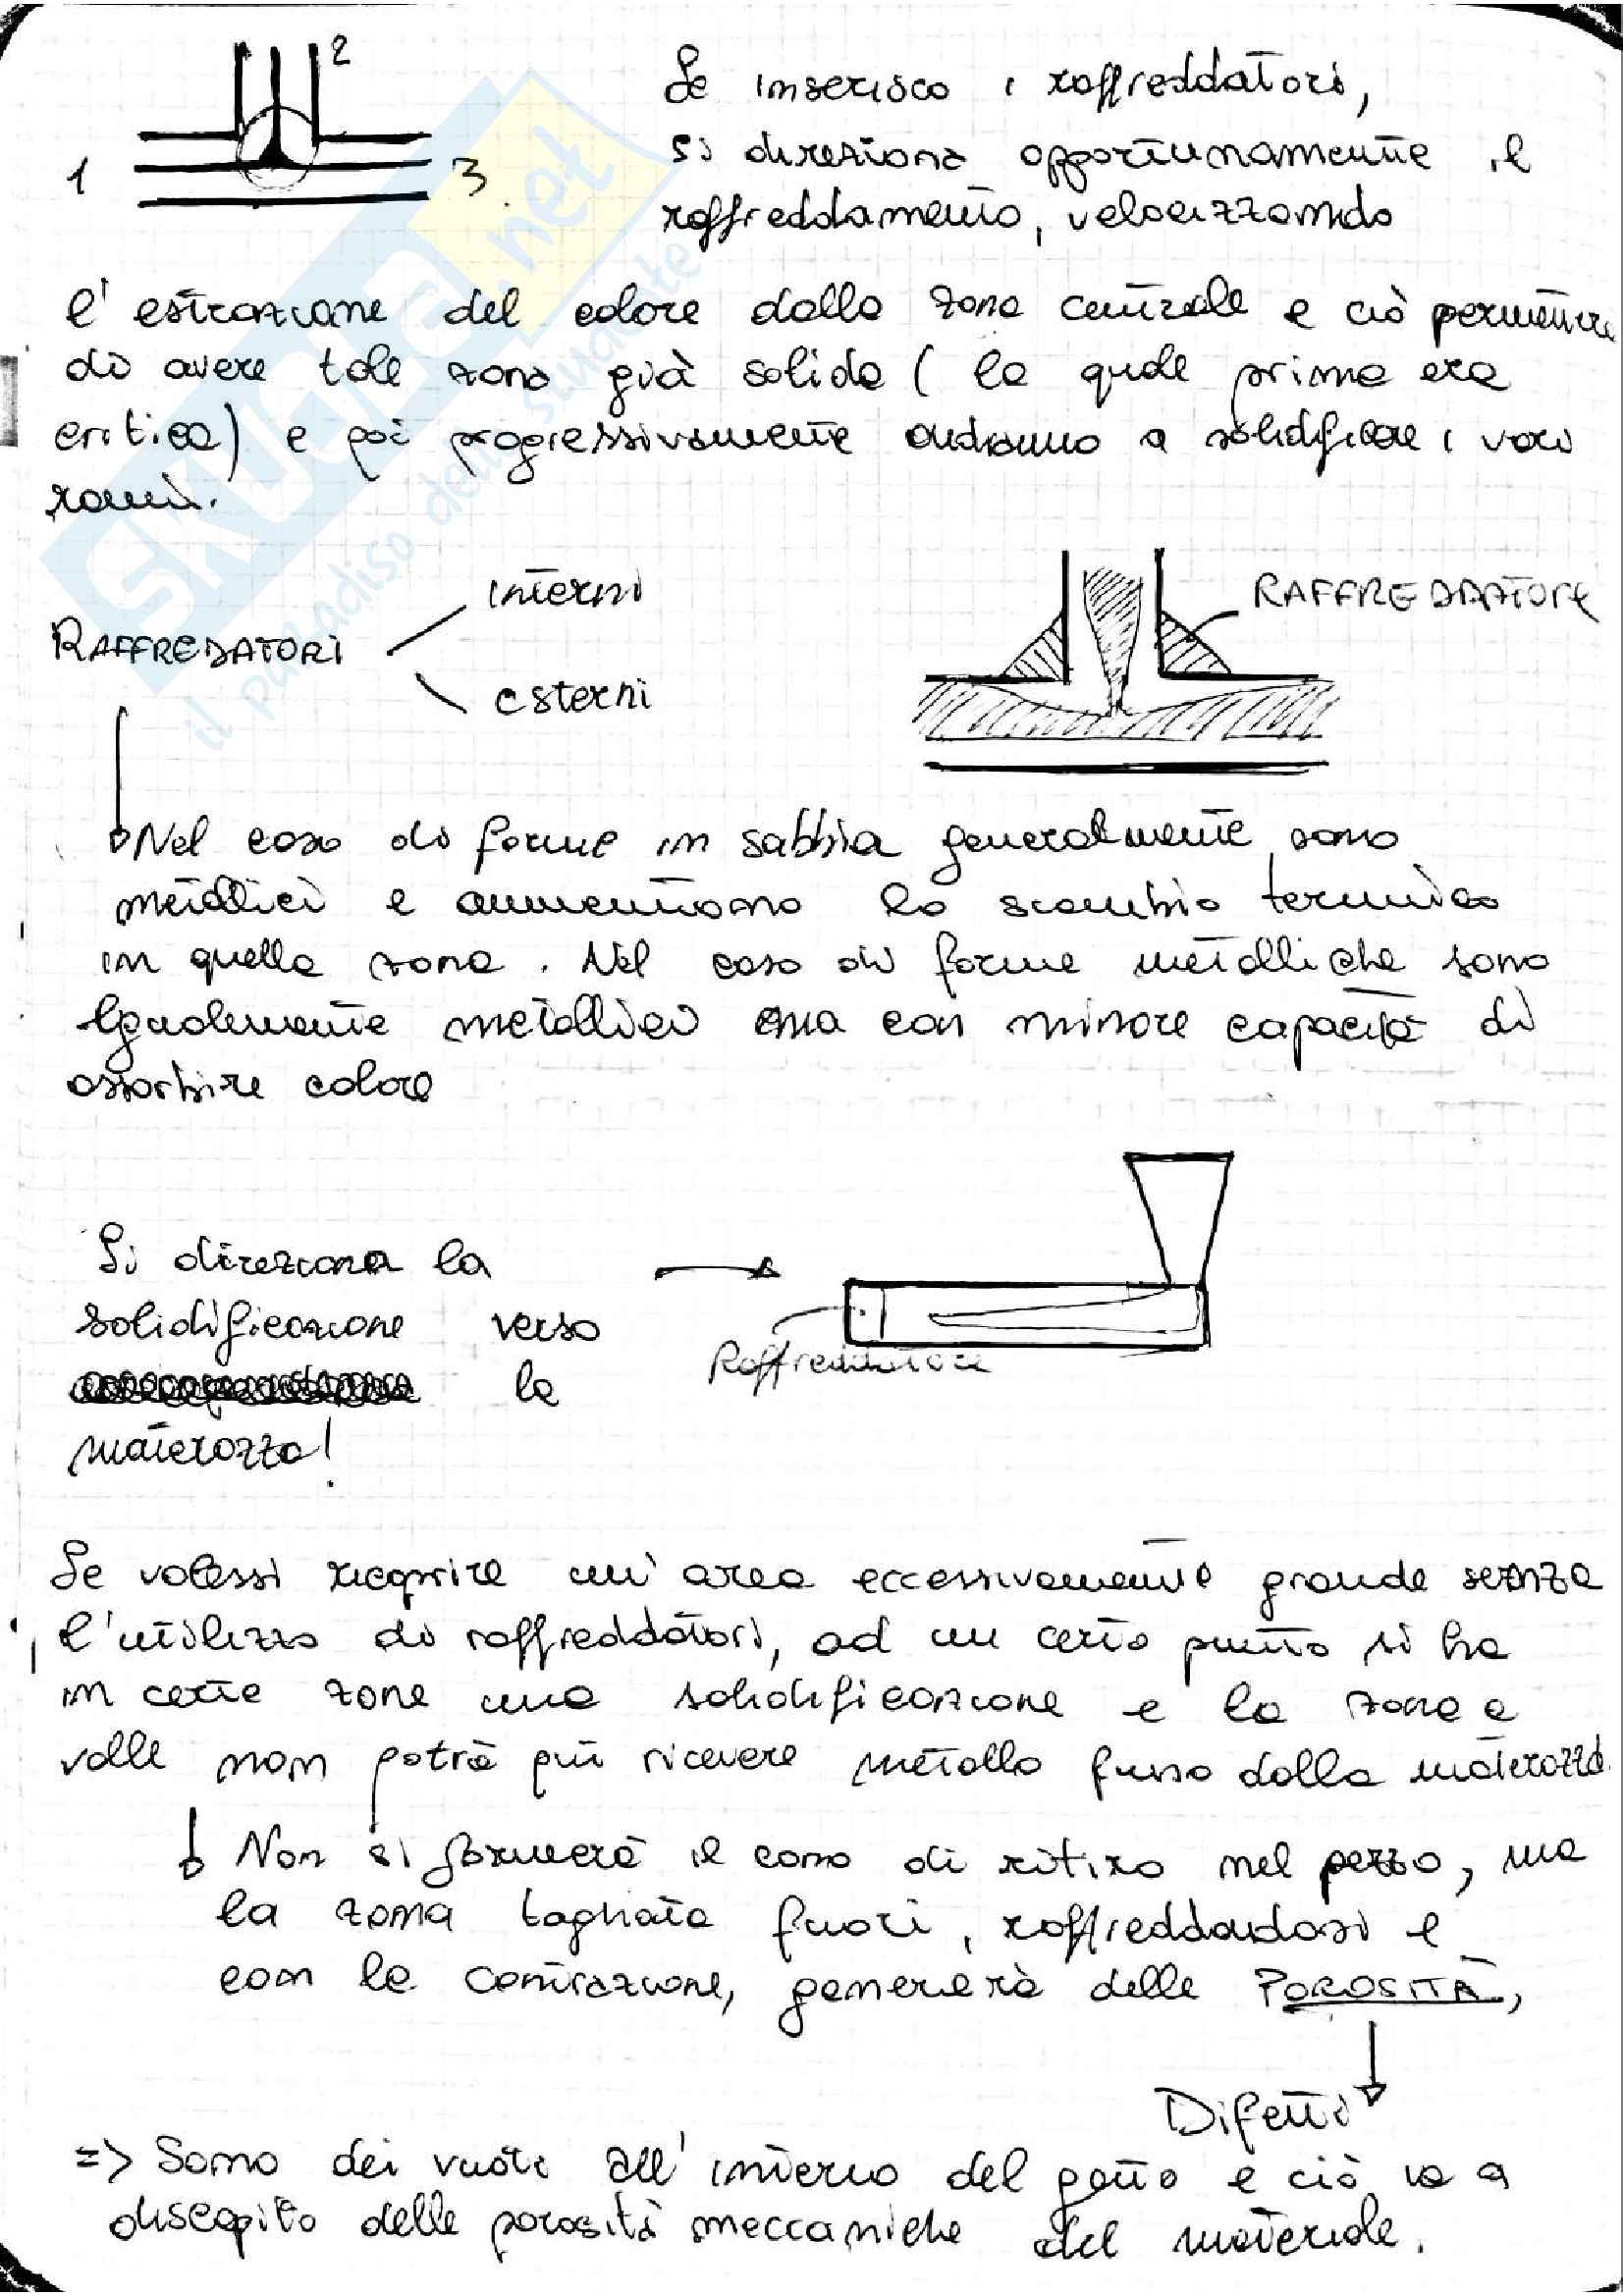 2
1
3
Se inserisco i raffreddatori,
si direziona opportunamente il
raffreddamento, velocizzando
l'estrazione del calore dalla zona centrale e ciò permette
di avere tale zona già solida (la quale prima era
critica) e poi progressivamente andranno a solidificare i vari
rami.
interni
RAFFREDATORI
esterni
RAFFREDDATORE
Nel caso di forme in sabbia generalmente sono
metallici e aumentano lo scambio termico
in quella zona. Nel caso di forme metalliche sono
Ugualmente metallici ma con minore capacità di
assorbire calore
Si direziona la
solidificazione verso
la
materozza!
Raffreddatore
Se volessi ricoprire un'area eccessivamente grande senza
l'utilizzo di raffreddatori, ad un certo punto si ha
in certe zone una solidificazione e la zona a
valle non potrà più ricevere metallo fuso dalla materozza.
Non si formerà il cono di ritiro nel pezzo, ma
la zona tagliata fuori, raffreddandosi e
con la contrazione, genererà delle POROSITÀ,
Difetti
=> Sono dei vuoti all'interno del getto e ciò va a
discapito delle porosità meccaniche del materiale.
SKUOLA.net
il paradiso dello studente